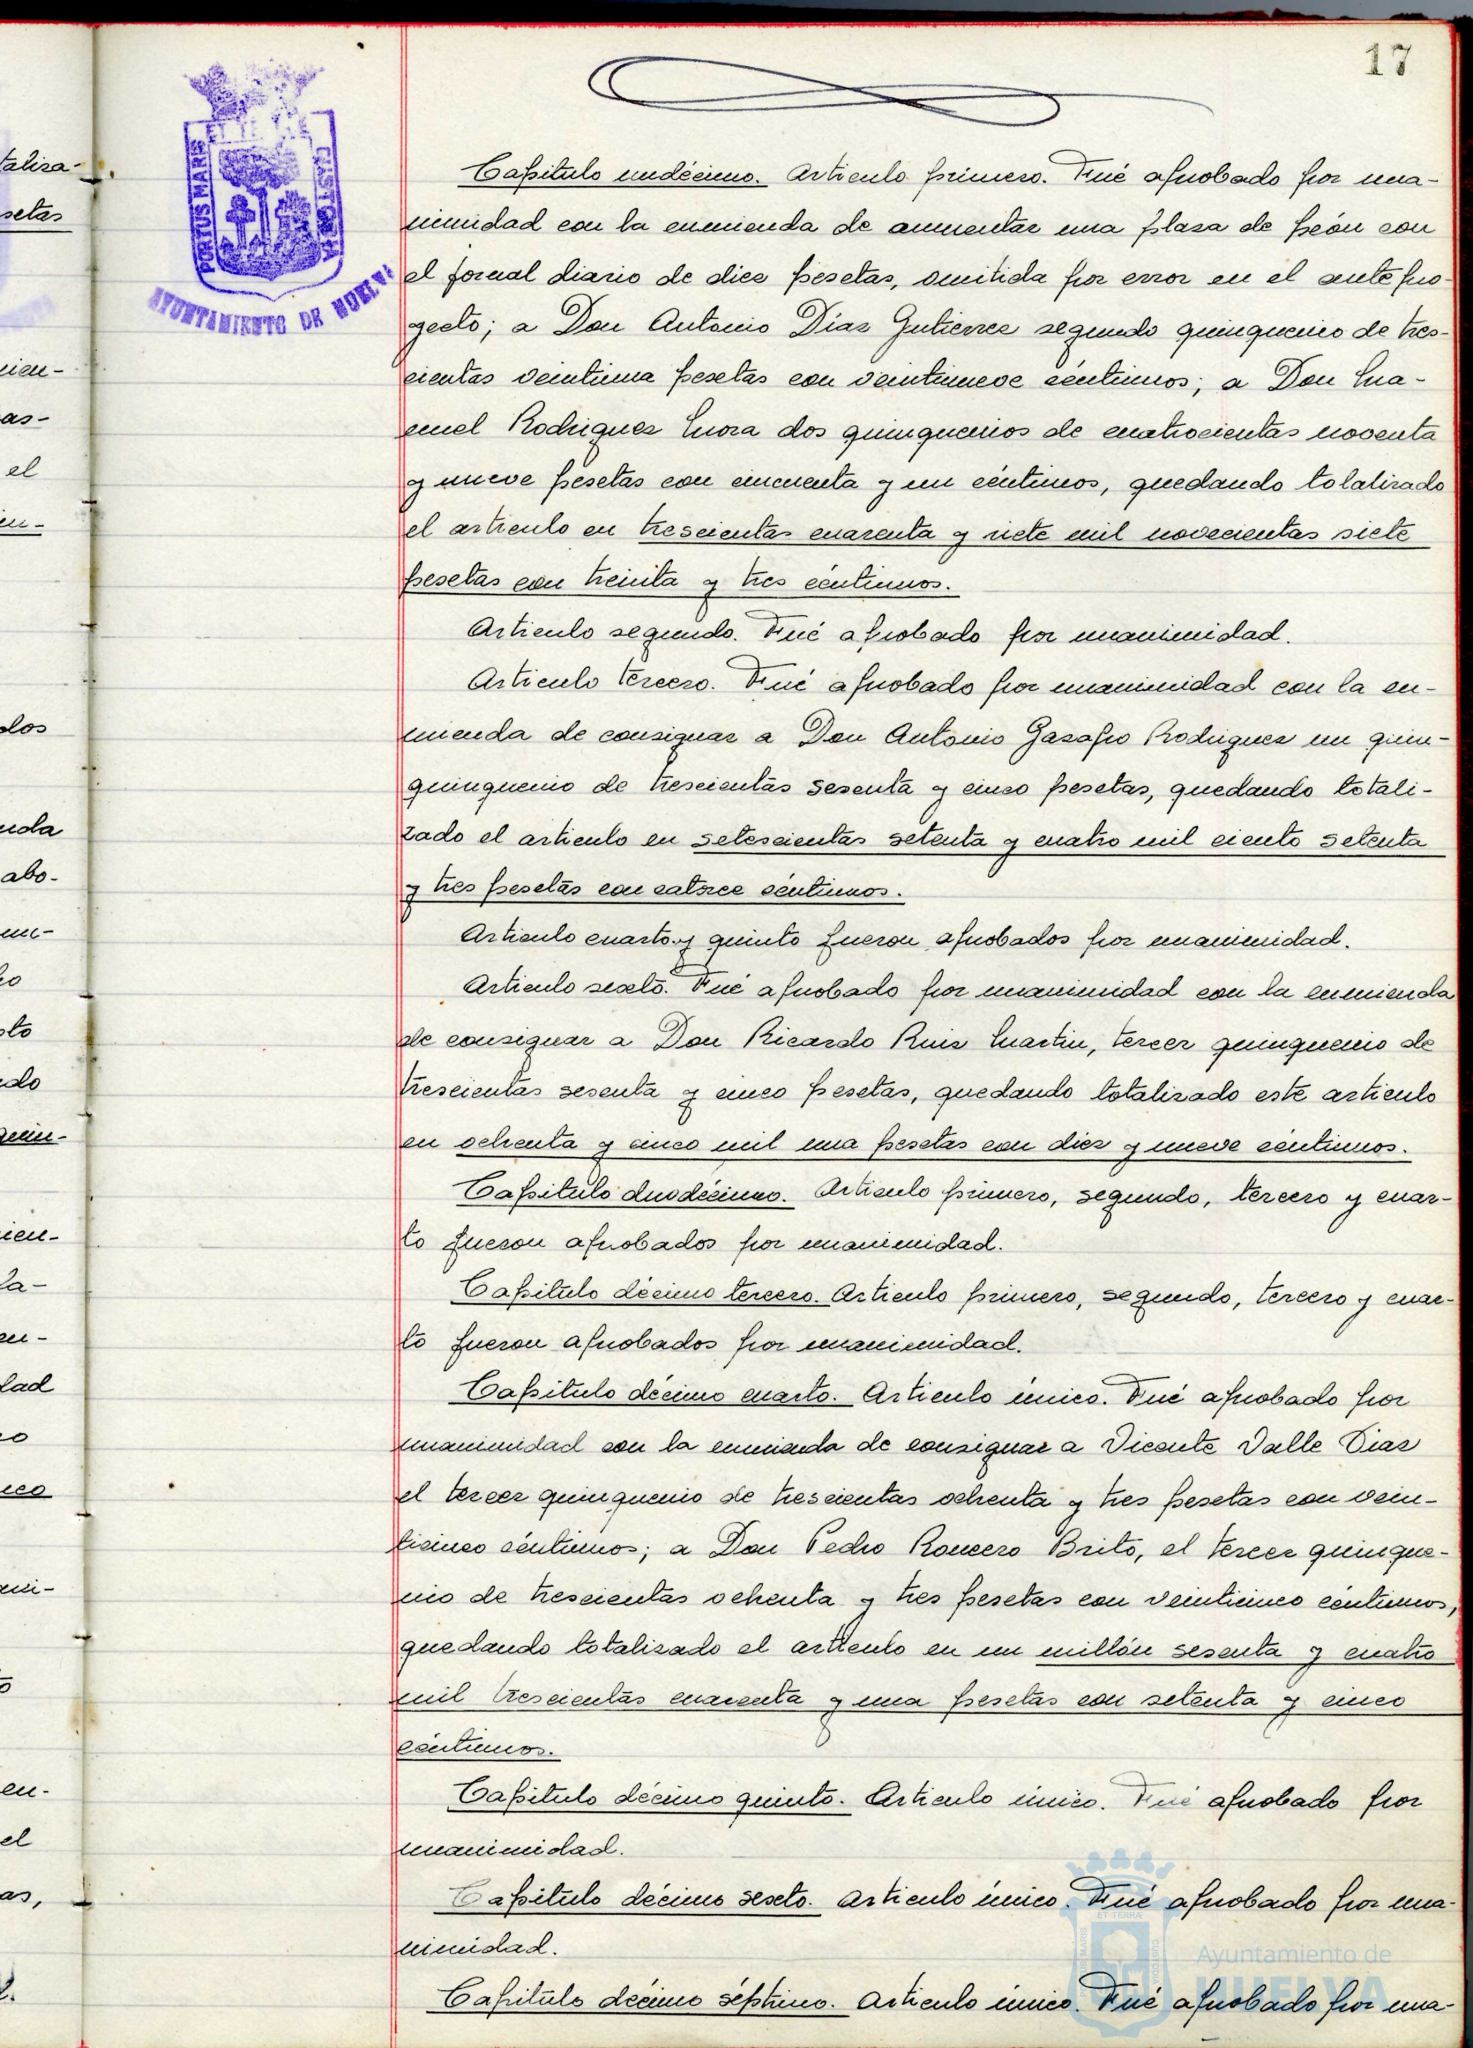 17
PORTUS MARIS
ET TERRAE
CUSTODIA
AYUNTAMIENTO DE HUELVA
Capitulo undécimo. Articulo primero. Fué aprobado por una-
nimidad con la enmienda de aumentar una plaza de peón con
el jornal diario de diez pesetas, omitida por error en el antepro-
yecto; a Don Antonio Díaz Gutierrez segundo quinquenio de tres-
cientas veintiuna pesetas con veintinueve céntimos; a Don Ma-
nuel Rodriguez Mora dos quinquenios de cuatrocientas noventa
y nueve pesetas con cincuenta y un céntimos, quedando tolatizado
el articulo en trescientas cuarenta y siete mil novecientas siete
pesetas con treinta y tres céntimos.
Articulo segundo. Fué aprobado por unanimidad.
Articulo tercero. Fué aprobado por unanimidad con la en-
mienda de consignar a Don Antonio Gazapo Rodriguez un quin-
quinquenio de trescientas sesenta y cinco pesetas, quedando totali-
zado el articulo en setescientas setenta y cuatro mil ciento setenta
y tres pesetas con catorce céntimos.
Articulo cuarto y quinto fueron aprobados por unanimidad.
Articulo sexto. Fué aprobado por unanimidad con la enmienda
de consignar a Don Ricardo Ruiz Martin, tercer quinquenio de
trescientas sesenta y cinco pesetas, quedando totalizado este articulo
en ochenta y cinco mil una pesetas con diez y nueve céntimos.
Capitulo duodécimo. Articulo primero, segundo, tercero y cuar-
to fueron aprobados por unanimidad.
Capitulo décimo tercero. Articulo primero, segundo, tercero y cuar-
to fueron aprobados por unanimidad.
Capitulo décimo cuarto. Articulo único. Fué aprobado por
unanimidad con la enmienda de consignar a Vicente Valle Diaz
el tercer quinquenio de trescientas ochenta y tres pesetas con vein-
ticinco céntimos; a Don Pedro Romero Brito, el tercer quinque-
nio de trescientas ochenta y tres pesetas con veinticinco céntimos,
quedando totalizado el articulo en un millón sesenta y cuatro
mil trescientas cuarenta y una pesetas con setenta y cinco
céntimos.
Capitulo décimo quinto. Articulo único. Fué aprobado por
unanimidad.
Capitulo décimo sexto. Articulo único. Fué aprobado por una-
nimidad.
Capitulo décimo séptimo. Articulo único. Fué aprobado por una-
Ayuntamiento de
HUELVA